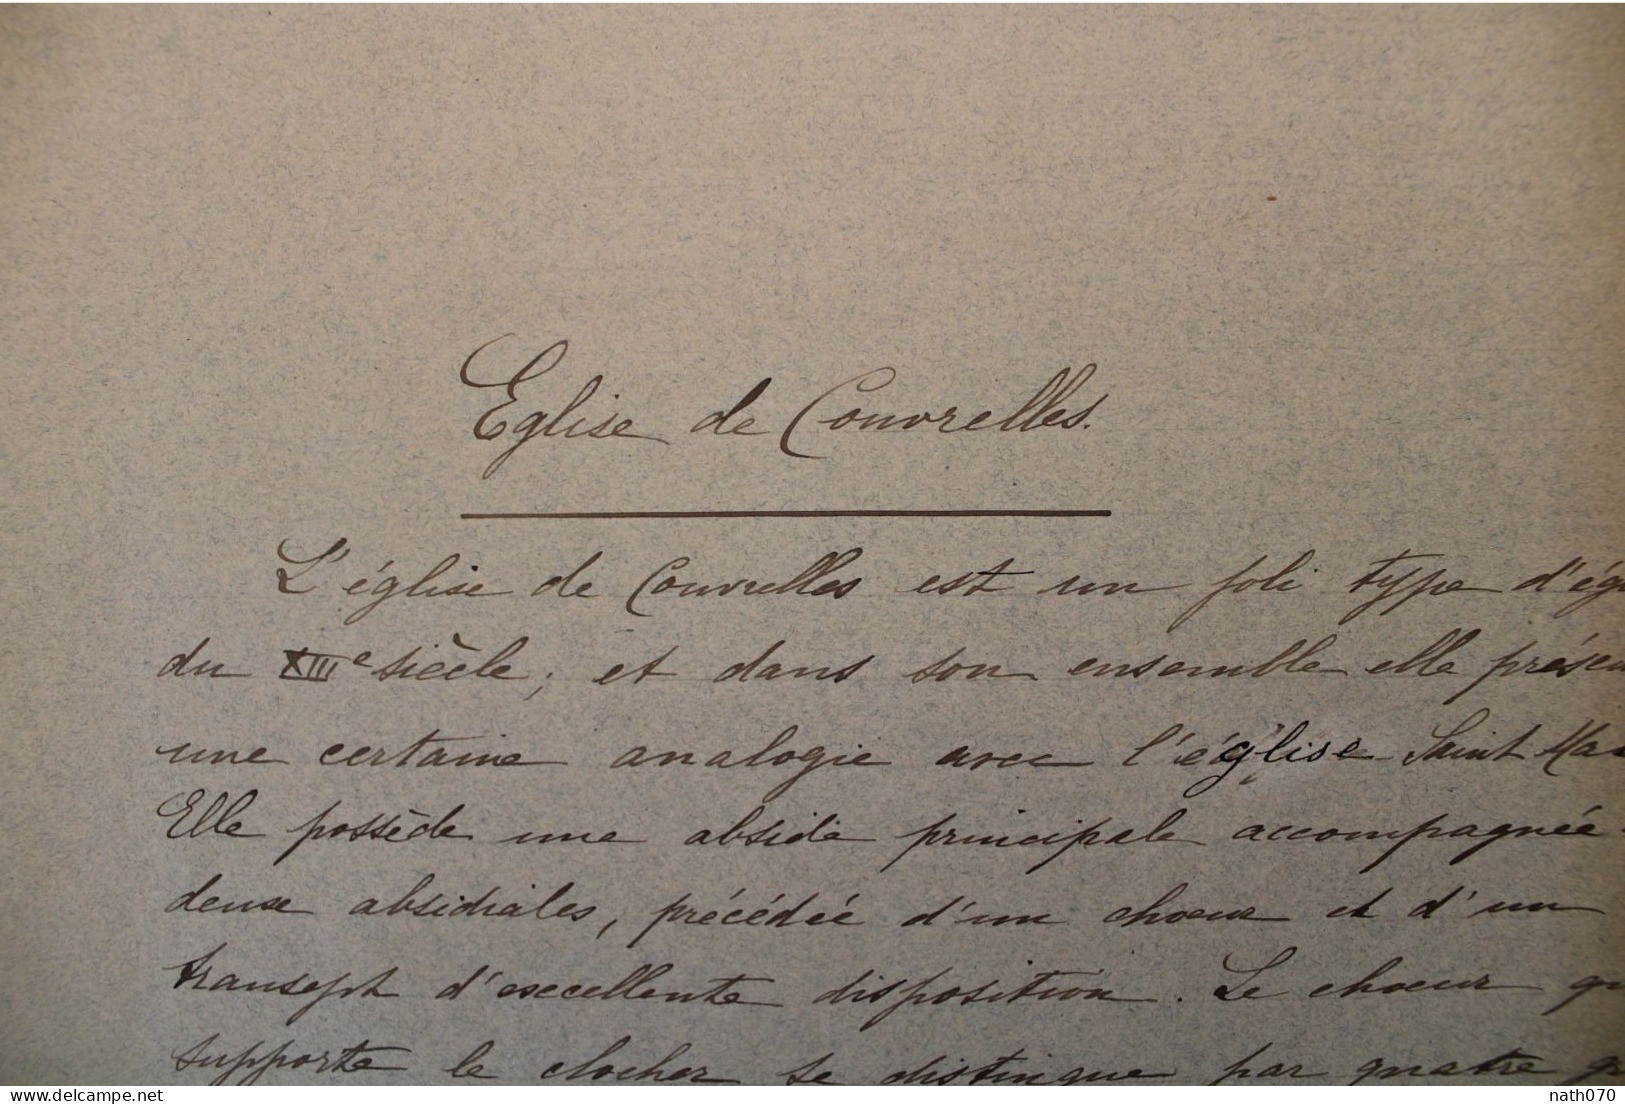 Eglise de Couvrelles.
L'église de Couvrelles est un joli type d'ég
du XIIIe siècle; et dans son ensemble elle présen
une certaine analogie avec l'église Saint
Elle possède une abside principale accompagnée
deux absidiales, précédée d'un choeur et d'un
transept d'excellente disposition. Le choeur qu
supporte le clocher se distingue par quatre g
delcampe.net
nath070